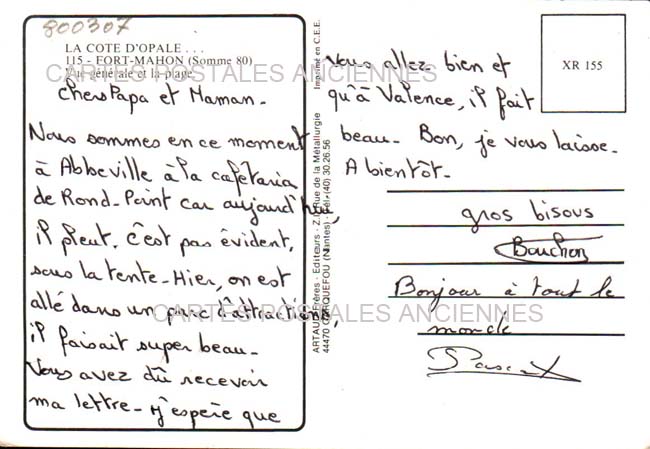 800307
LA COTE D'OPALE . . .
115 - FORT-MAHON (Somme 80)
Vue générale et la plage
CARTES POSTALES ANCIENNES
Chers Papa et Maman.
Nous sommes en ce moment
à Abbeville à la cafétaria
de Rond-Point car aujourd'hui,
il pleut. c'est pas évident,
sous la tente. Hier, on est
allé dans un parc d'attractions,
il faisait super beau.
Vous avez dû recevoir
ma lettre. J'espère que
CARTES POSTALES ANCIENNES
Imprimé en C.E.E.
ARTAUD Frères - Editeurs - Z.I. Rue de la Métallurgie
44470 CARQUEFOU (Nantes) - Tél. (40) 30.26.56
vous allez bien et
qu'à Valence, il fait
beau. Bon, je vous laisse.
A bientôt.
XR 155
gros bisous
Bouchon
Bonjour à tout le
monde
Pascal